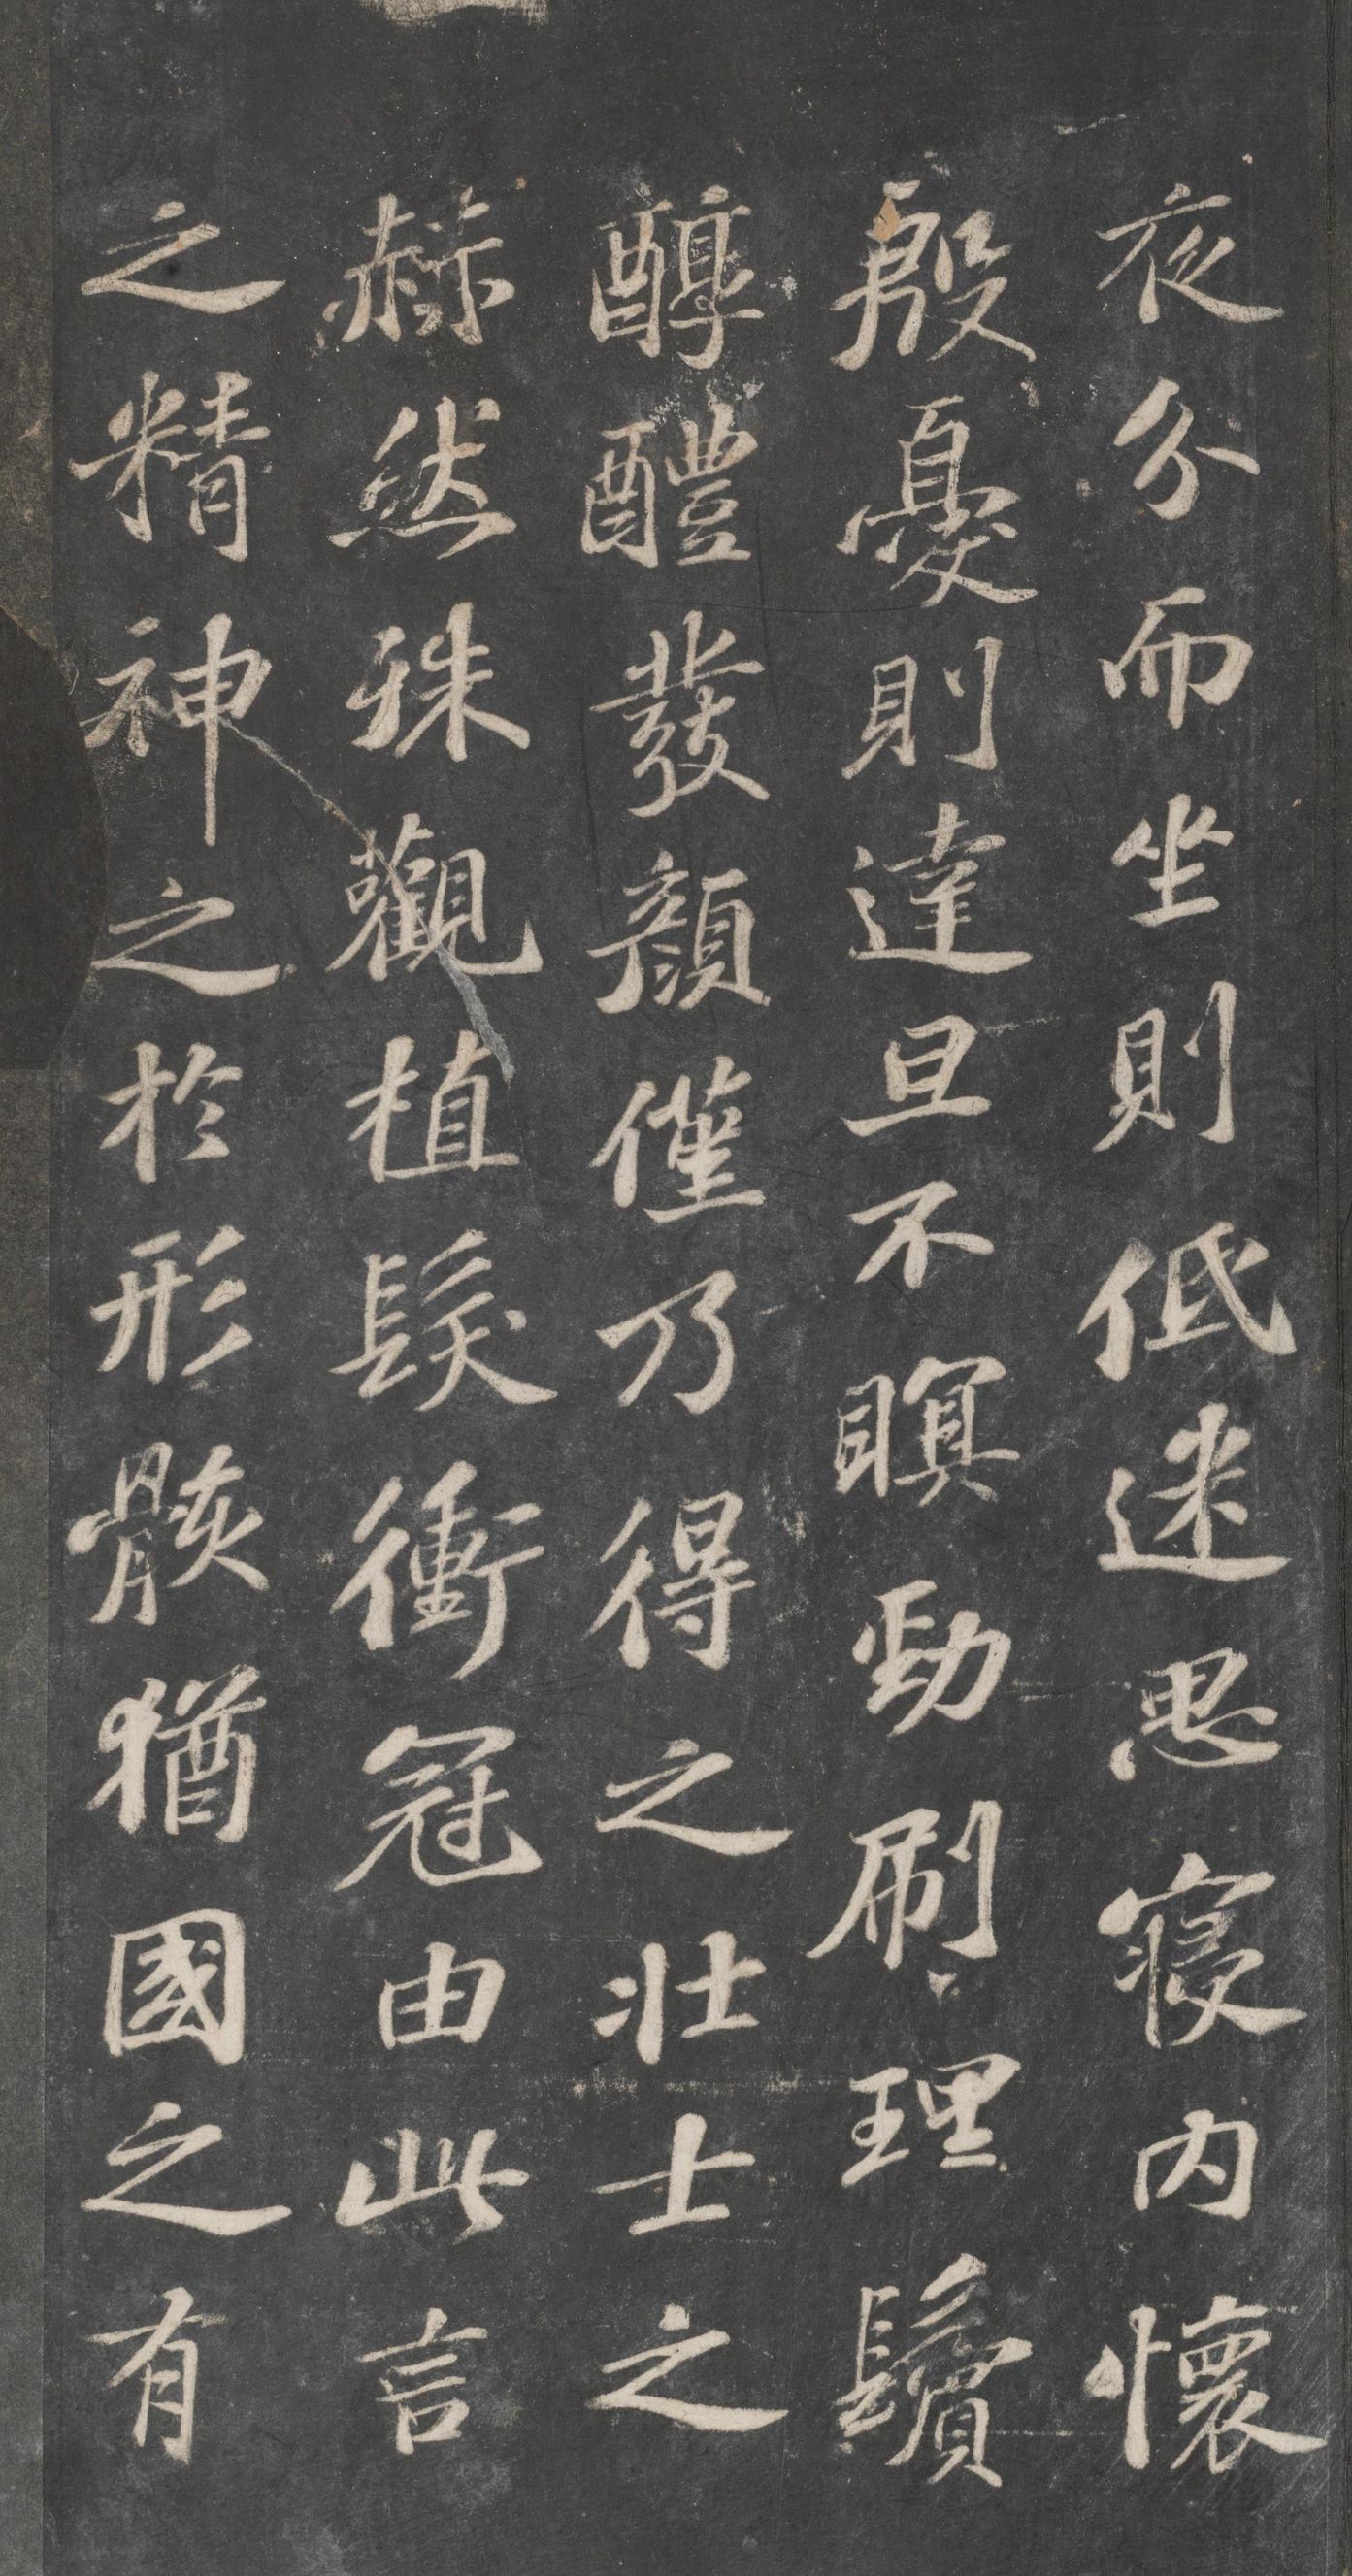 夜分而坐則低迷思寢內懷
殷憂則達旦不瞑勁刷理鬢
醇醴發顏僅乃得之壯士之
赫然殊觀植髮衝冠由此言
之精神之於形骸猶國之有